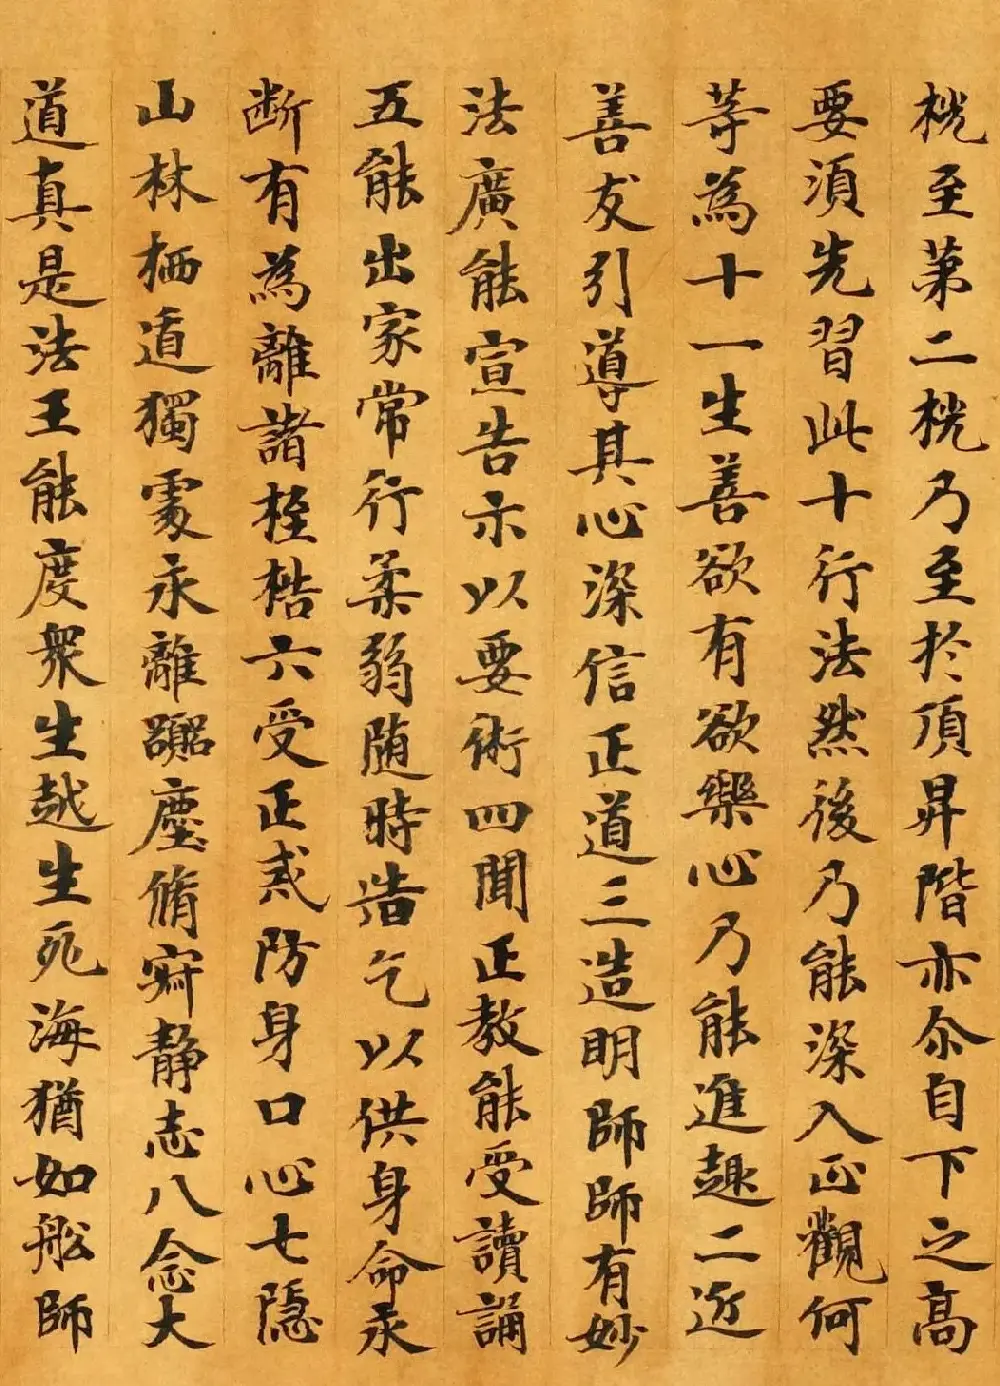 桄至第二桄乃至於頂昇階亦尒自下之高
要須先習此十行法然後乃能深入正觀何
等為十一生善欲有欲樂心乃能進趣二近
善友引導其心深信正道三造明師師有妙
法廣能宣告示以要術四聞正教能受讀誦
五能出家常行柔弱随時造乞以供身命永
断有為離諸桎梏六受正戒防身口心七隱
山林栖遁獨處永離囂塵脩寂静志八念大
道真是法王能度衆生越生死海猶如舩師